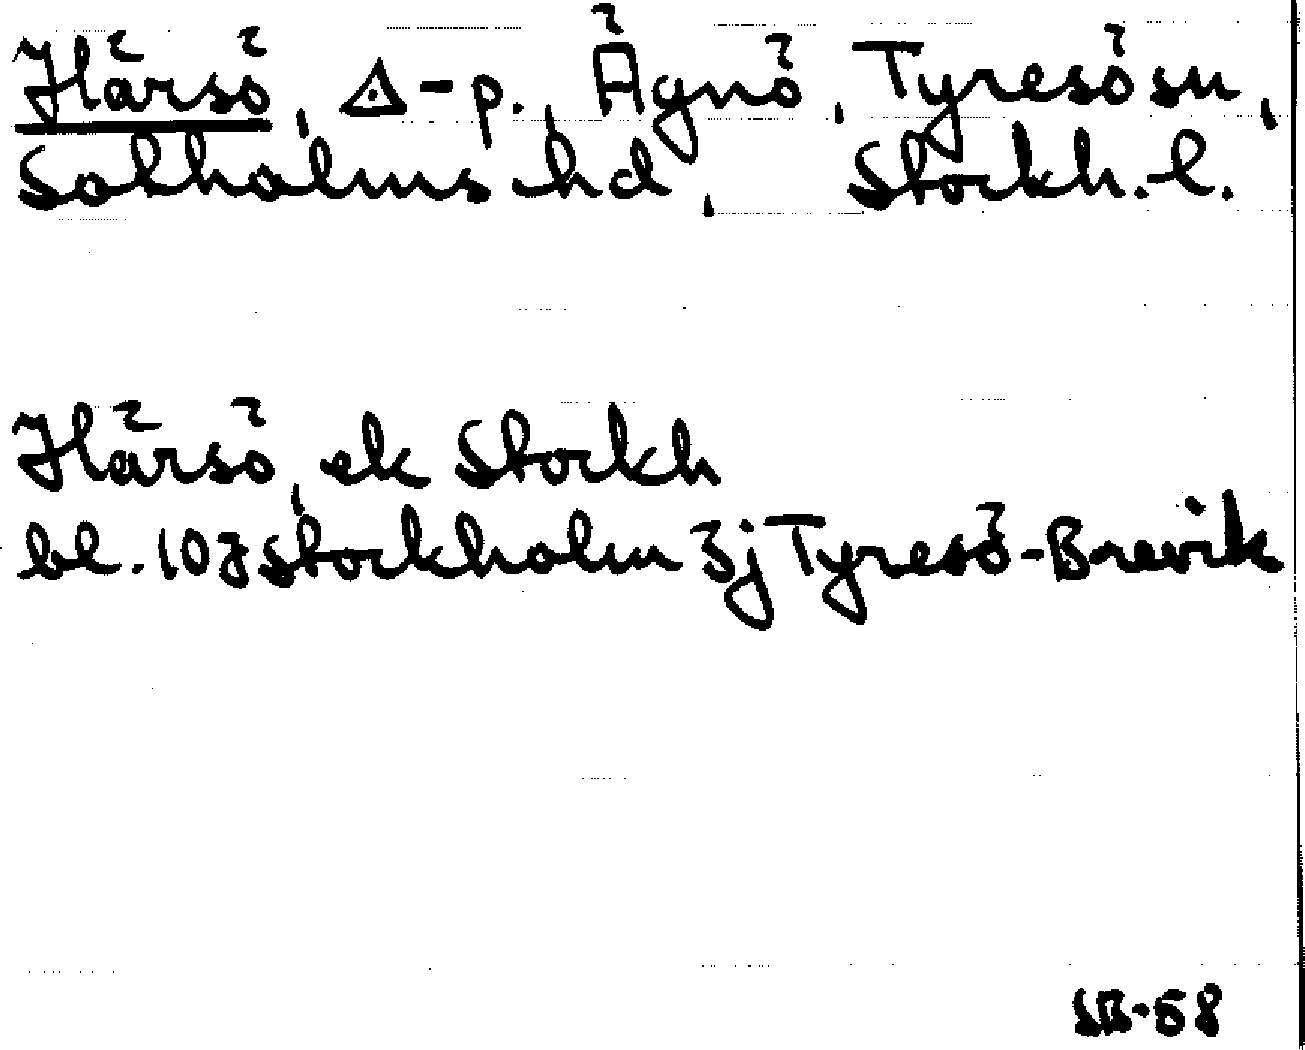 Härsö, △-p., Ägnö, Tyresö sn,
Sotholms hd, Stockh. l.
Härsö, ek Stockh
bl. 10J Stockholm 3j Tyresö-Brevik
SB-58